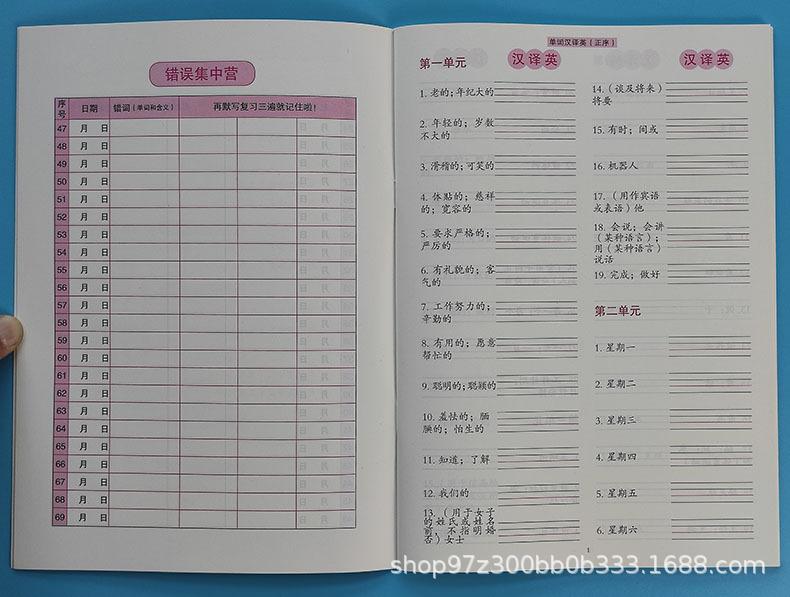 错误集中营
序号 日期 错词（单词和含义） 再默写复习三遍就记住啦！
47 月 日
48 月 日
49 月 日
50 月 日
51 月 日
52 月 日
53 月 日
54 月 日
55 月 日
56 月 日
57 月 日
58 月 日
59 月 日
60 月 日
61 月 日
62 月 日
63 月 日
64 月 日
65 月 日
66 月 日
67 月 日
68 月 日
69 月 日
单词汉译英（正序）
第一单元
汉译英
1. 老的；年纪大的
2. 年轻的；岁数
不大的
3. 滑稽的；可笑的
4. 体贴的；慈祥
的；宽容的
5. 要求严格的；
严厉的
6. 有礼貌的；客
气的
7. 工作努力的；
辛勤的
8. 有用的；愿意
帮忙的
9. 聪明的；聪颖的
10. 羞怯的；腼
腆的；怕生的
11. 知道；了解
12. 我们的
13. （用于女子
的姓氏或姓名
前，不指明婚
否）女士
汉译英
14.（谈及将来）
将要
15. 有时；间或
16. 机器人
17. （用作宾语
或表语）他
18. 会说；会讲
（某种语言）；
用（某种语言）
说话
19. 完成；做好
第二单元
1. 星期一
2. 星期二
3. 星期三
4. 星期四
5. 星期五
6. 星期六
1
shop97z300bb0b333.1688.com